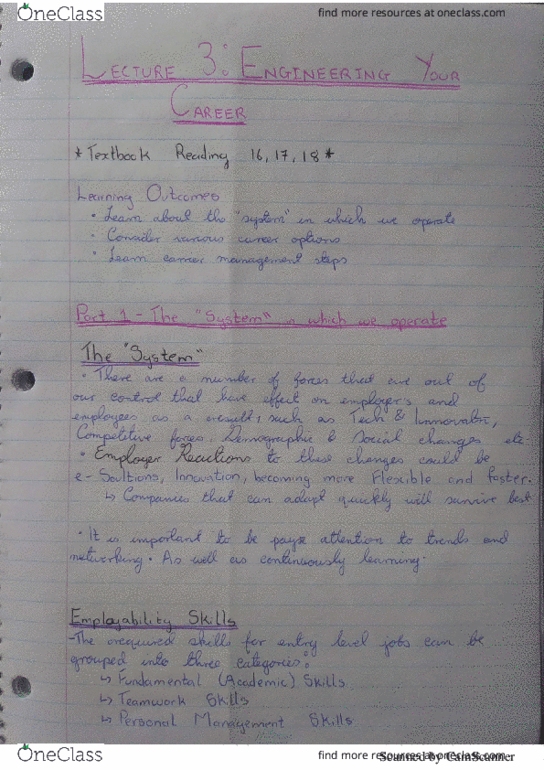 OneClass
find more resources at oneclass.com
LECTURE 3: ENGINEERING YOUR
CAREER
* Textbook Reading 16, 17, 18 *
Learning Outcomes
• Learn about the "system" in which we operate
• Consider various career options
• Learn career management steps
Part 1 - The "System" in which we operate
The "System"
• There are a number of forces that are out of
our control that have effect on employers and
employees as a result, such as Tech & Innovation,
Competitive forces, Demographic & Social changes etc.
• Employer Reactions to these changes could be
e-Soultions, Innovation, becoming more Flexible and faster.
↳ Companies that can adapt quickly will survive best
• It is important to be payse attention to trends and
networking. As well as continuously learning.
Employability Skills
-The required skills for entry level jobs can be
grouped into three categories:
↳ Fundamental (Academic) Skills
↳ Teamwork Skills
↳ Personal Management Skills
OneClass
find more resources at oneclass.com
Scanned by CamScanner